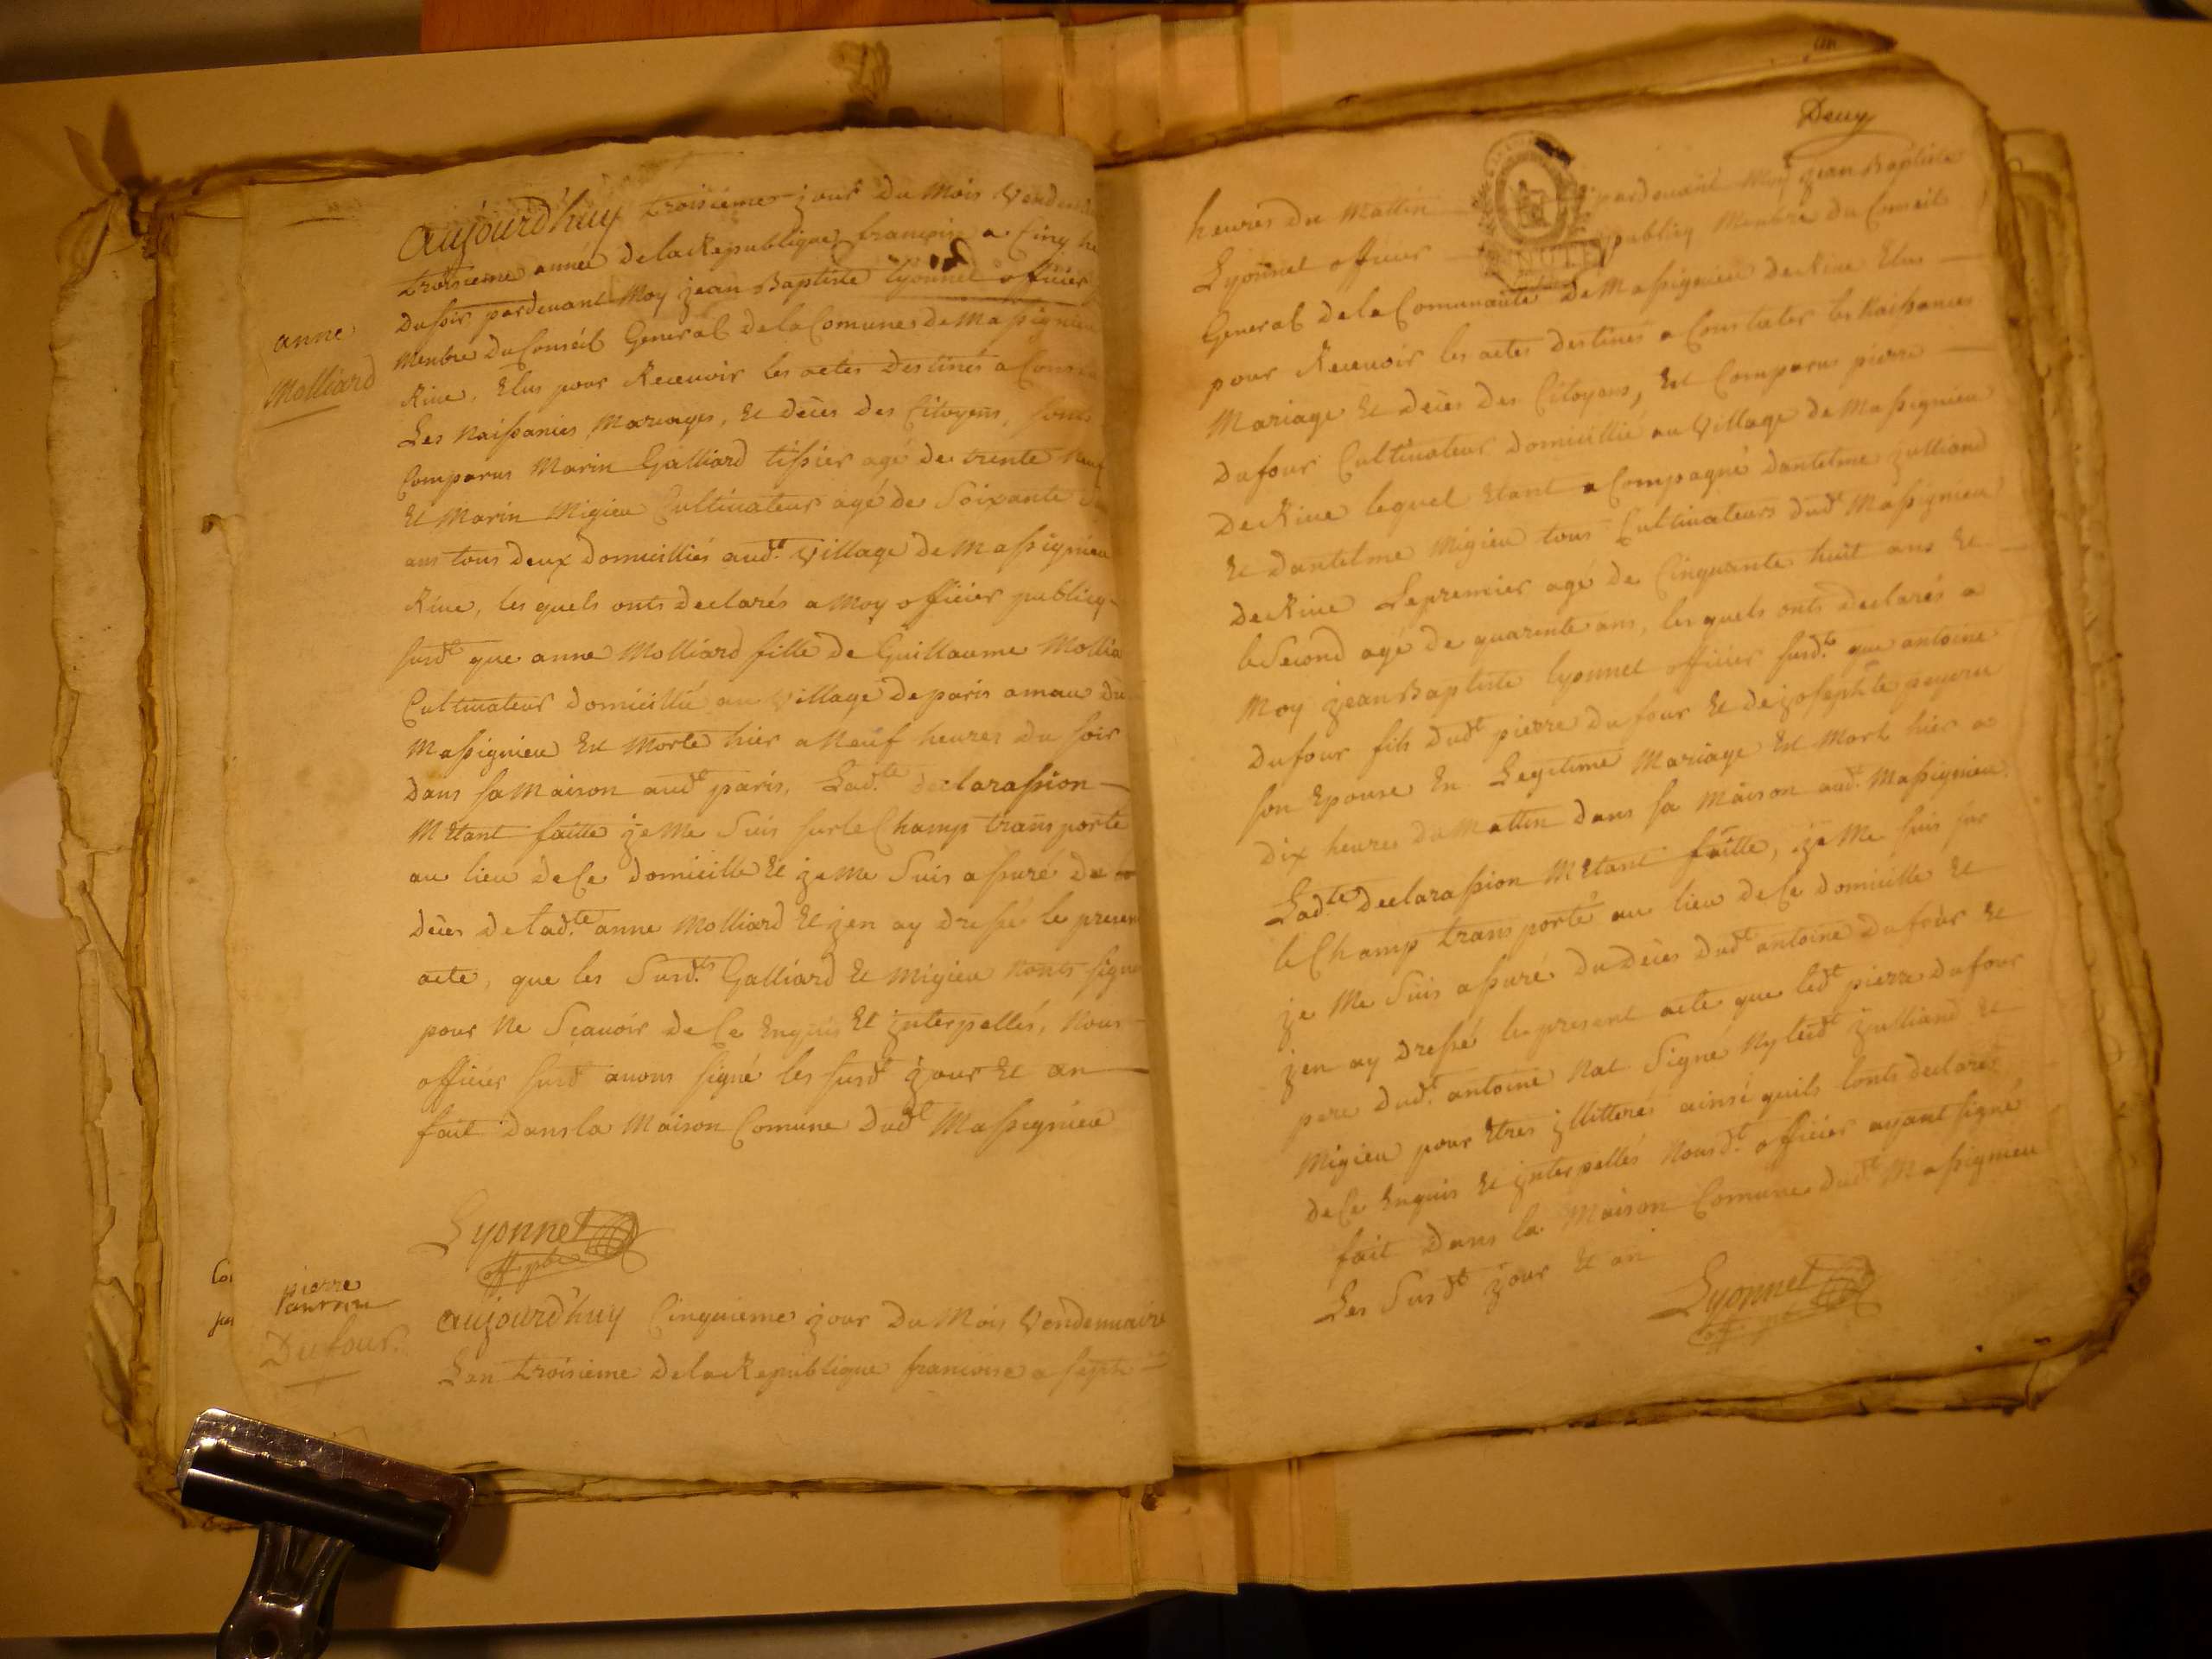 aujourd'huy troisieme jour Du Mois Vendem
troisieme année de la Republique francoise a Cinq he
Du soir pardevant Moy jean Baptiste Lyonnet officier
Menbre Du Conseil General de la Comune de Massignieu
anne
Molliard
Rive, Elus pour Recevoir les actes Destinés a Cons
Les Naissances, Mariages, Et Décès des Citoyens, sont
Comparus Marin Galliard tissier agé de trente neuf
Et Marin Migieu Cultivateur agé de Soixante
ans tous Deux Domicilliés aud.t Village de Massignieu
Rive, les quels onts declarés a Moy officier publicq
susd.t que anne Molliard fille de Guillaume Mollia
Cultivateur domicillié au Village de paris amau du
Massignieu Est Morte hier a Neuf heures Du soir
Dans sa Maison aud.t paris, Lad.te declarassion
M Etant faitte je Me Suis sur le Champ transporté
au lieu de Ce domicille Et je Me Suis assuré Du
Décès de lad.te anne Molliard Et jen ay dressé le presen
acte, que les Susd.ts Galliard Et Migieu Nonts signé
pour Ne Sçavoir de Ce Enquis Et jnterpellés, Nous
officier susd.t avons signé les susd.t jour Et an
fait Dans la Maison Comune Dud.t Massignieu
Lyonnet
off. pbc
pierre
Dufour
aujourd'huy Cinquieme jour Du Mois Vendemiaire
Lan troisieme de la Republique francoise a sept
Deuy
heures du Mattin pardevant Moy jean Baptiste
Lyonnet officier publicq Menbre du Conseil
General de la Comunauté de Massignieu de Rive Elus
pour Recevoir les actes destinés a Constater les Naissances
Mariage Et Décès Des Citoyens, Est Comparus pierre
Dufour Cultivateur domicillié au Village de Massignieu
de Rive lequel Etant a Compagné dantelme julliand
Et dantelme Migieu tous Cultivateurs dud.t Massignieu
de Rive Le premier agé de Cinquante huit ans Et
le Second agé de quarente ans, les quels onts declarés a
Moy jean Baptiste Lyonnet officier susd.t que antoine
Dufour fils dud.t pierre dufour Et de josephte peyereu
son Epouse En Legitime Mariage Est Mort hier a
Dix heures du Mattin dans sa Maison aud.t Massignieu
Lad.te Declarassion M Etant faitte, je Me suis sur
le Champ transporté au lieu de Ce domicille Et
je Me Suis assuré Du Décès dud.t antoine Dufour Et
jen ay Dressé le present acte que led.t pierre Dufour
pere dud.t antoine Nat Signé Ny lesd.t julliand Et
Migieu pour Etres jllitterés ainsi quils lonts declarés
de Ce Enquis Et jnterpellés Nousd.t officier ayant signé
fait Dans la Maison Comune dud.t Massignieu
Les Susd.t jour Et an
Lyonnet
off. pbc